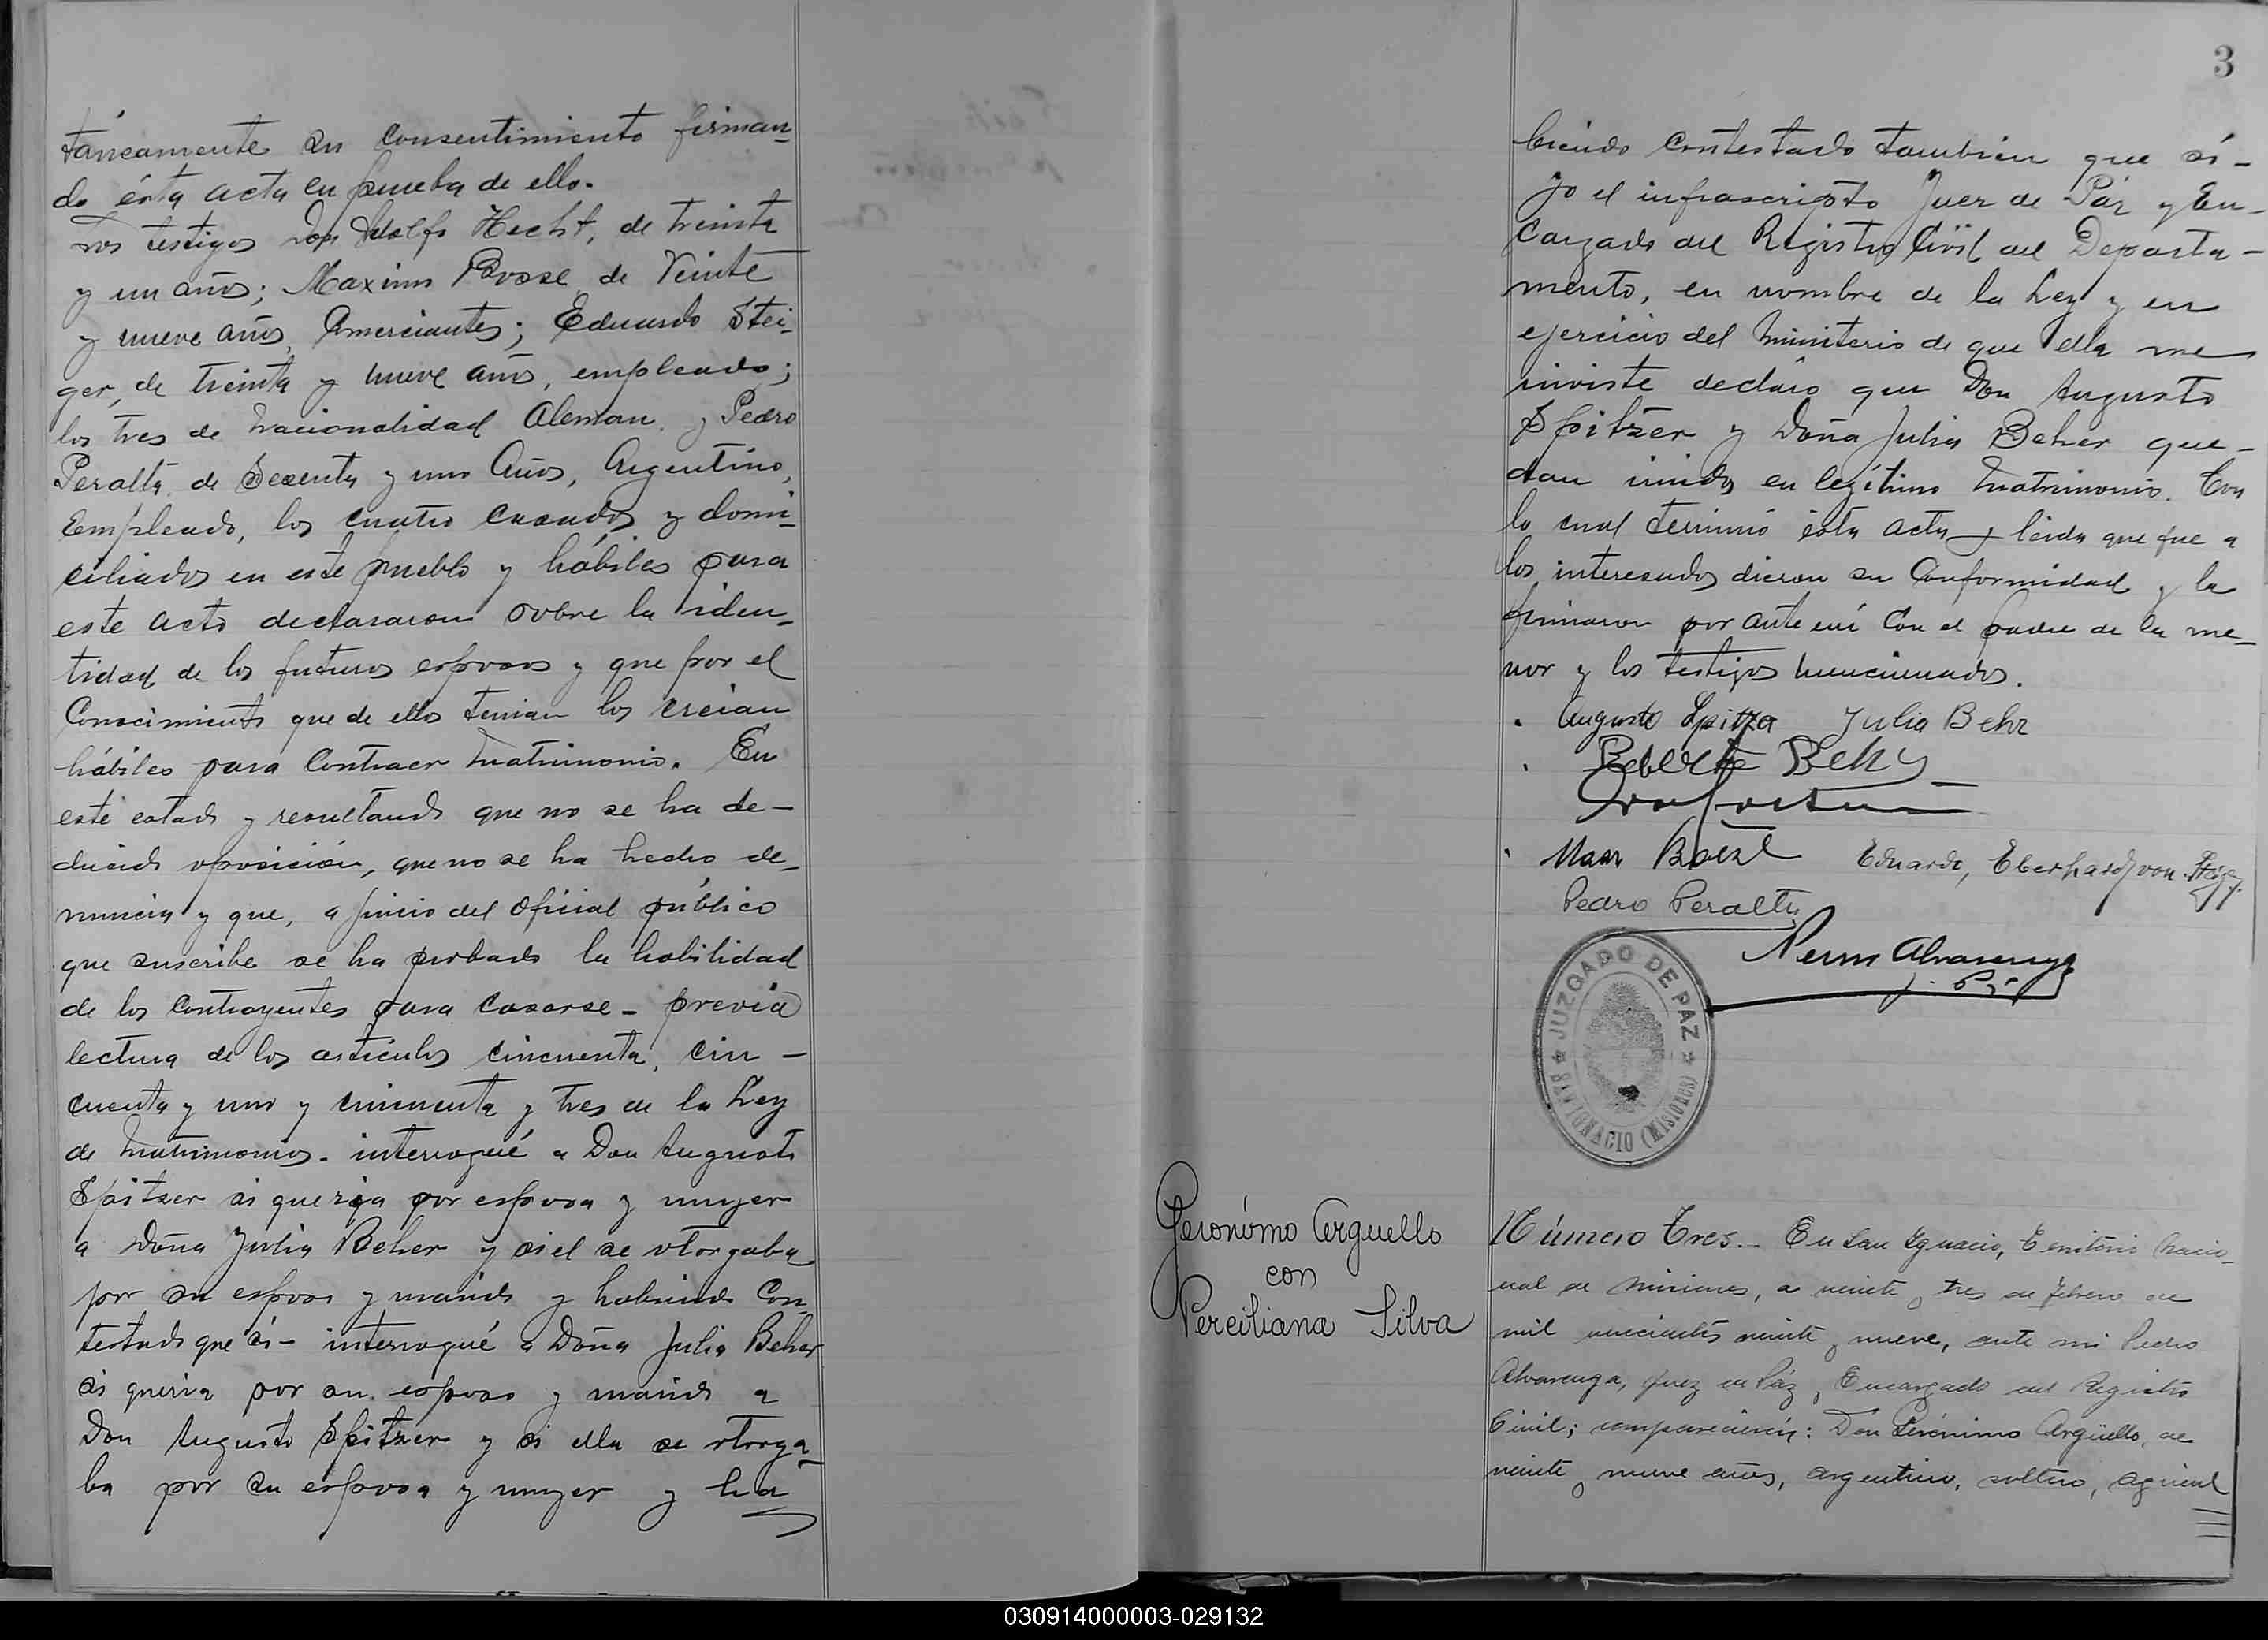 táneamente su consentimiento firman-
do ésta acta en prueba de ello.
Los testigos Don Adolfo Hecht, de treinta
y un años; Maximo Boose de Veinte
y nueve años, Comerciantes; Eduardo Stei-
ger, de treinta y nueve años, empleado;
los tres de nacionalidad Aleman y Pedro
Peralta de Sesenta y uno Años, Argentino,
Empleado, los cuatro casados y domi-
ciliados en este pueblo y hábiles para
este acto declararon sobre la iden-
tidad de los futuros esposos y que por el
Conocimiento que de ellos tenian los creian
hábiles para Contraer matrimonio. En
este estado y resultando que no se ha de-
ducido oposición, que no se ha hecho de-
nuncia y que, a juicio del oficial público
que suscribe se ha probado la habilidad
de los Contrayentes para casarse - previa
lectura de los articulos cincuenta, cin-
cuenta y uno y cincuenta y tres de la Ley
de matrimonios - interrogué a Don Augusto
Spitzer si queria por esposa y mujer
a Doña Julia Beher y si el se otorgaba
por su esposo y marido y habiendo Con-
testado que sí - interrogué a Doña Julia Beher
si queria por su esposo y marido a
Don Augusto Spitzer y si ella se otorga-
ba por su esposa y mujer y ha
3
biendo contestado tambien que sí -
Yo el infrascripto Juez de Páz y En-
cargado del Registro Civil del Departa-
mento, en nombre de la Ley y en
ejercicio del ministerio de que ella me
inviste declaro que Don Augusto
Spitzer y Doña Julia Beher que-
dan unidos en legítimo matrimonio. Con
lo cual terminó ésta acta y leida que fue a
los interesados dieron su Conformidad y la
firmaron por ante mí Con el padre de la me-
nor y los testigos mencionados.
Augusto Spitzer Julia Behr
Behr
Max Eduardo, Eberhard von
Pedro Peralta
Alvarenga
JUZGADO DE PAZ
SAN IGNACIO (MISIONES)
Geronómo Arguello
con
Perciliana Silva
Número Tres. - En San Ignacio, Territorio Nacio-
nal de Misiones, a veinte y tres de febrero de
mil novecientos veinte y nueve, ante mi Pedro
Alvarenga, Juez de Páz y Encargado del Registro
Civil; comparecieron: Don Gerónimo Argüello, de
veinte y nueve años, argentino, soltero, agricul
030914000003-029132